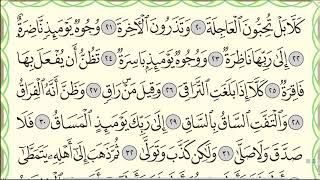 كَلَّا بَلْ تُحِبُّونَ ٱلْعَاجِلَةَ ٢٠ وَتَذَرُونَ ٱلْأَخِرَةَ ٢١ وُجُوهٌ يَوْمَئِذٍ نَّاضِرَةٌ
٢٢ إِلَىٰ رَبِّهَا نَاظِرَةٌ ٢٣ وَوُجُوهٌ يَوْمَئِذٍۭ بَاسِرَةٌ ٢٤ تَظُنُّ أَن يُفْعَلَ بِهَا
فَاقِرَةٌ ٢٥ كَلَّآ إِذَا بَلَغَتِ ٱلتَّرَاقِىَ ٢٦ وَقِيلَ مَنْ رَاقٍ ٢٧ وَظَنَّ أَنَّهُ ٱلْفِرَاقُ
٢٨ وَٱلْتَفَّتِ ٱلسَّاقُ بِٱلسَّاقِ ٢٩ إِلَىٰ رَبِّكَ يَوْمَئِذٍ ٱلْمَسَاقُ ٣٠ فَلَا
صَدَّقَ وَلَا صَلَّىٰ ٣١ وَلَٰكِن كَذَّبَ وَتَوَلَّىٰ ٣٢ ثُمَّ ذَهَبَ إِلَىٰٓ أَهْلِهِۦ يَتَمَطَّىٰٓ